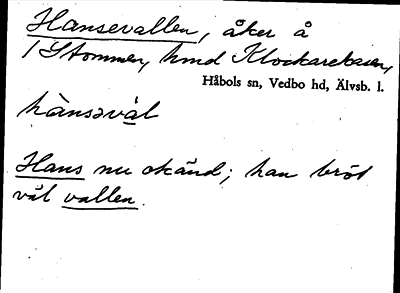 Hansevallen, åker å
1 Stommen, hmd Klockarekasen,
Håbols sn, Vedbo hd, Älvsb. l.
hànsəväl
Hans nu okänd; han bröt
väl vallen.